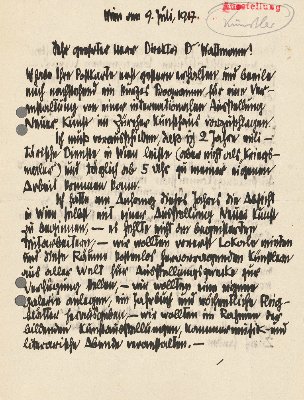 Ausstellung
Künstler
Wien am 9. Juli, 1917.
Sehr geehrter Herr Direktor Dr Wartmann!
Habe Ihre Postkarte erst gestern erhalten und beeile
mich nachstehend ein kurzes Programm für eine Ver-
anstaltung von einer internationalen Ausstellung
Neuer Kunst im Zürcher Kunsthaus vorzuschlagen.
Ich muß vorausschicken, daß ich 2 Jahre mili-
tärische Dienste in Wien leiste (aber nicht als Kriegs-
maler) und täglich ab 5 Uhr zu meiner eigenen
Arbeit kommen kann.
Ich hatte am Anfang dieses Jahres die Absicht
in Wien selbst mit einer Ausstellung Neuer Kunst
zu beginnen, — es fehlte nicht an begeisterten
Mitarbeitern, — wir wollten vorerst Lokale mieten
und diese Räume kostenlos hervorragenden Künstlern
aus aller Welt für Ausstellungszwecke zur
Verfügung stellen, — wir wollten eine eigene
Galerie anlegen, ein Jahrbuch und wöchentliche Flug-
blätter herausgeben, — wir wollten im Rahmen der
bildenden Kunstausstellungen, Kammermusik- und
literarische Abende veranstalten. —